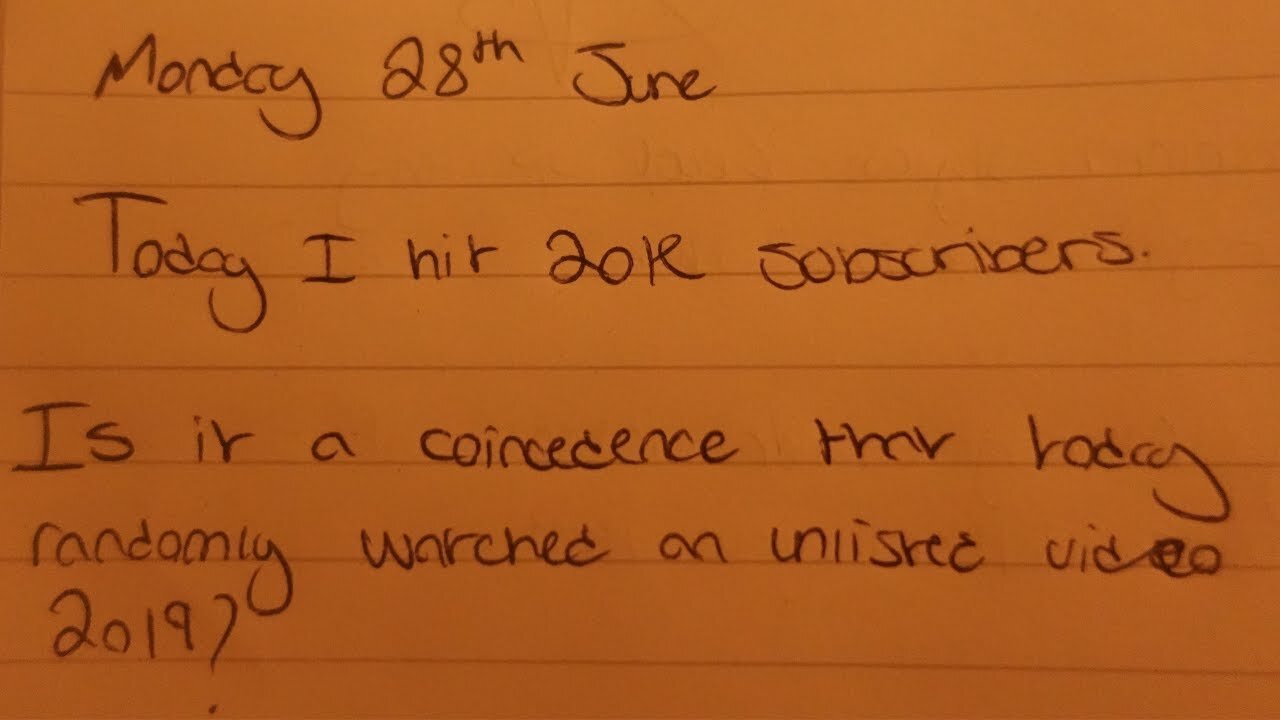 Monday 28th June
Today I hit 20K subscribers.
Is it a coincedence that today
randomly watched an unlisted video
2019?